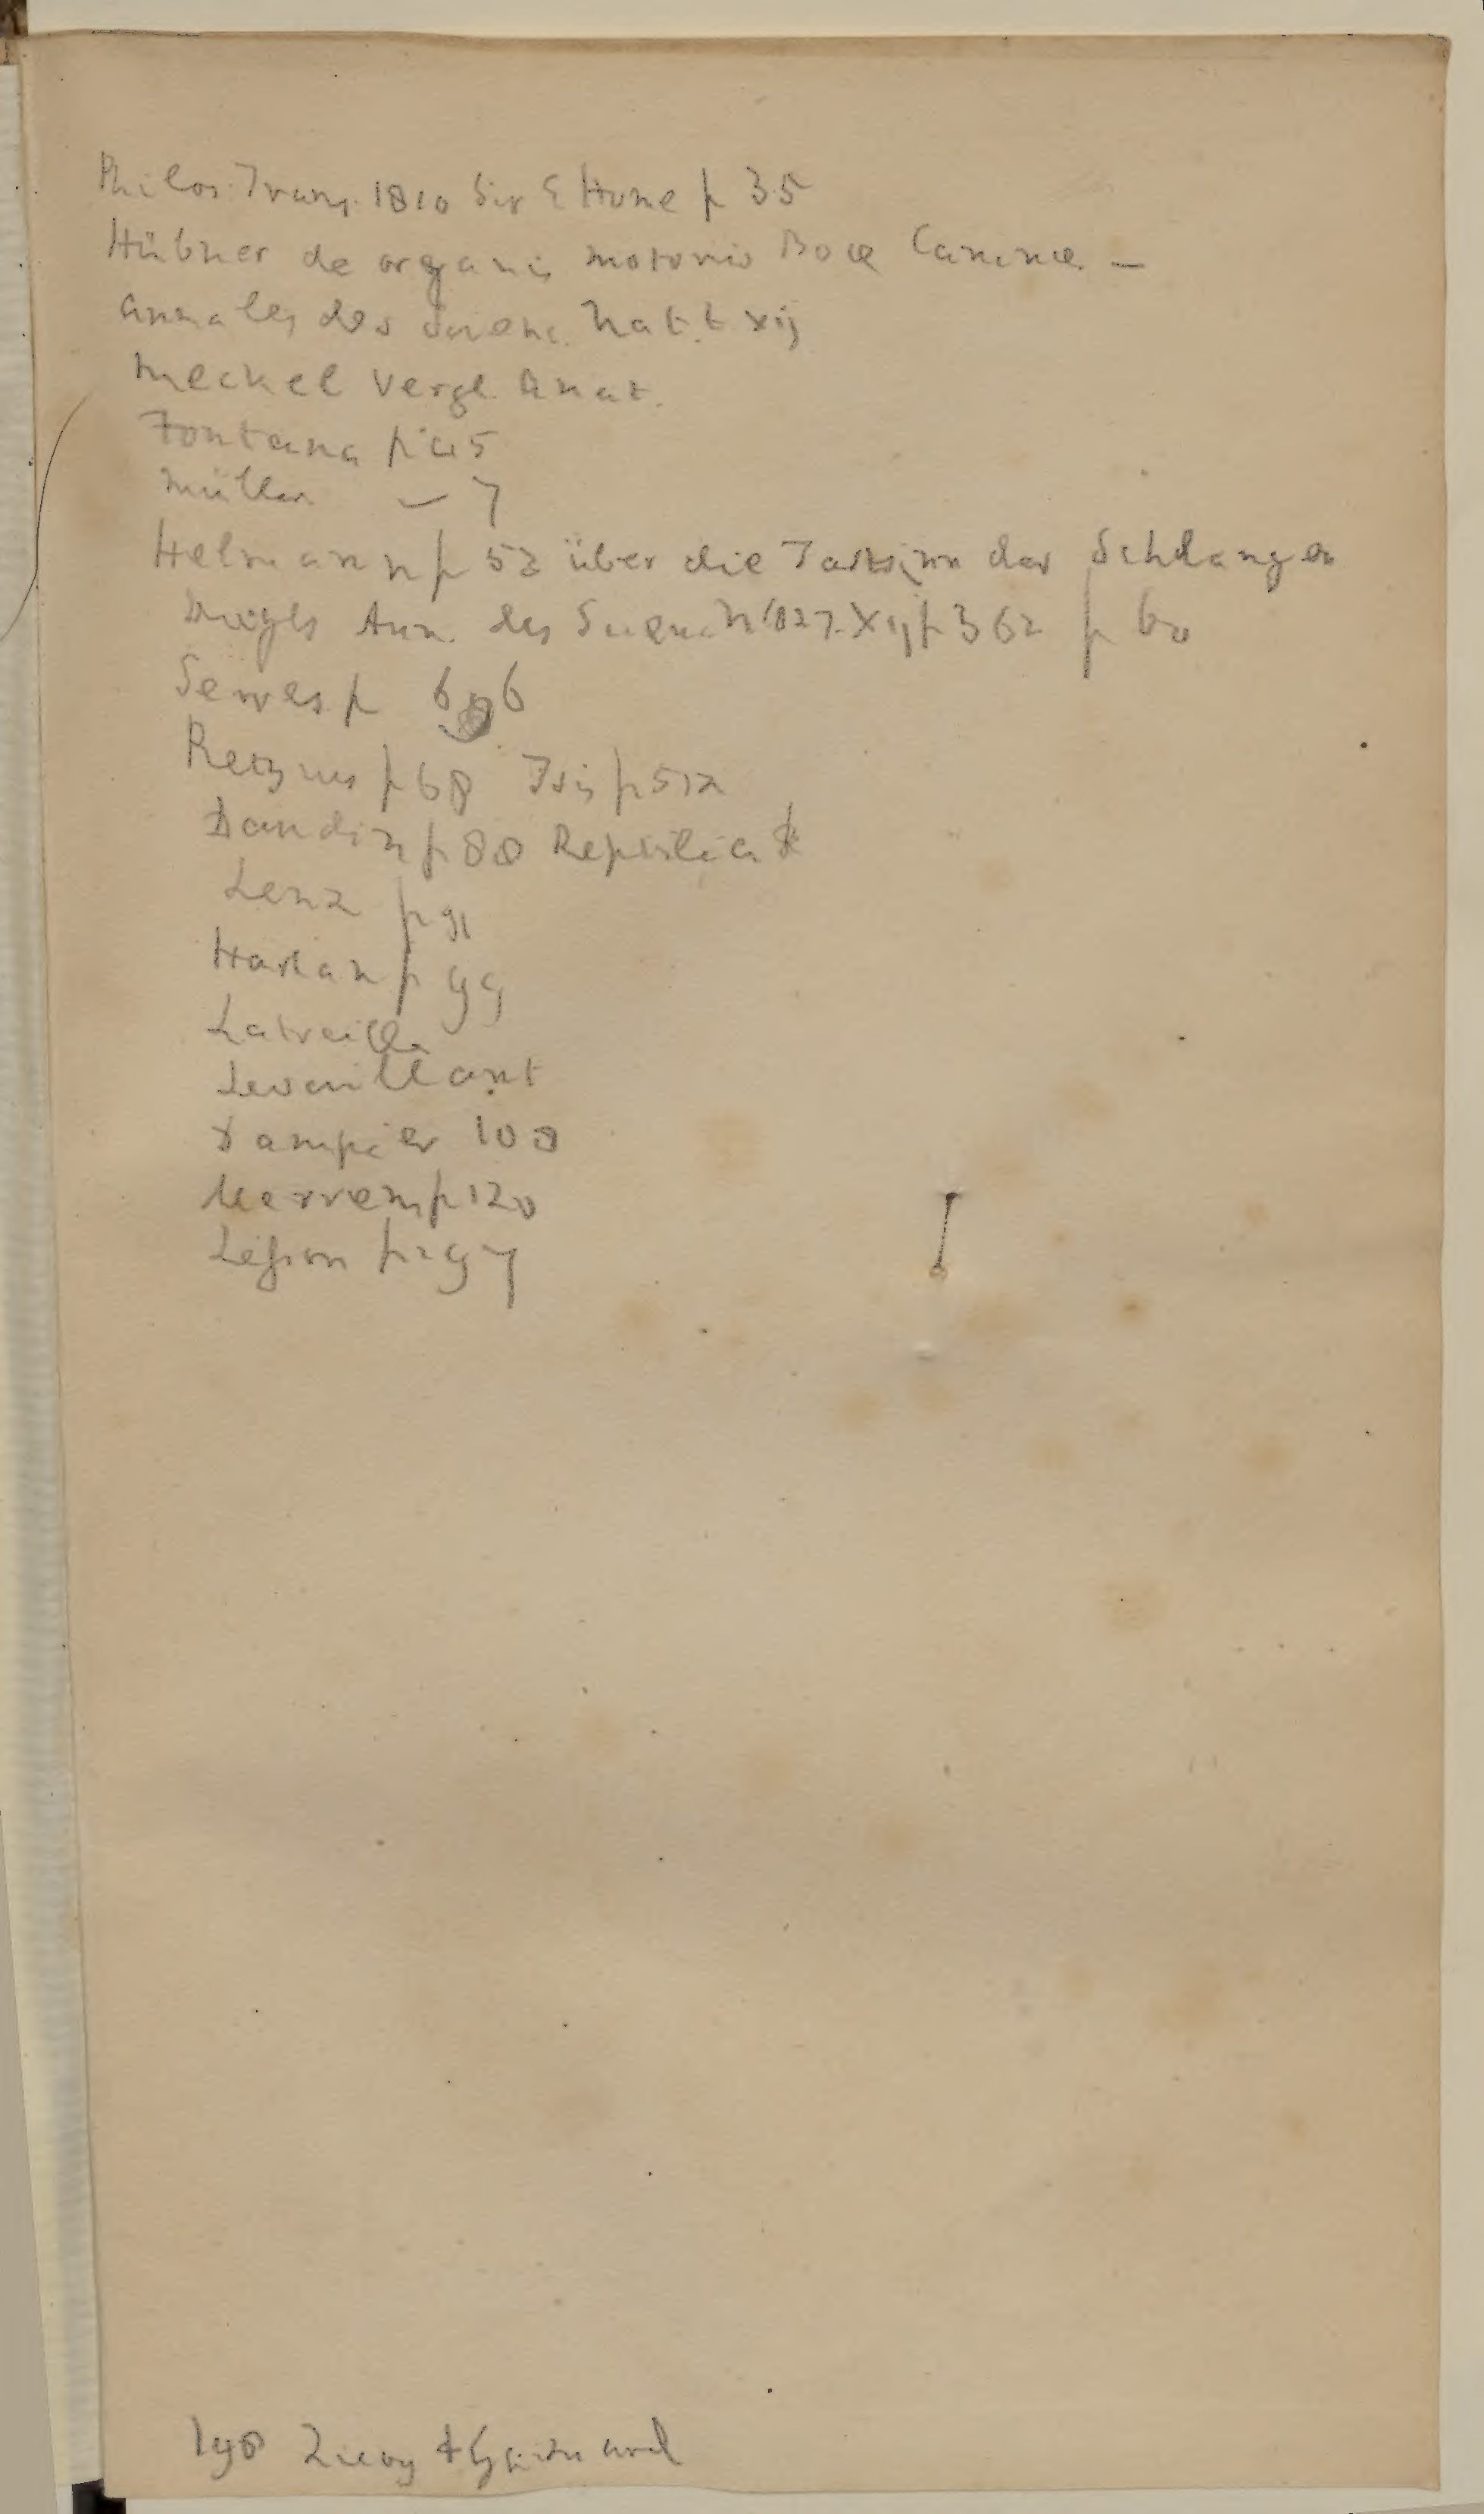 Philos. Trans. 1810 Sir E Hume p 35
Hübner de organis motoris Boae Caninae —
Annales des scienc. Nat. t xij
Meckel Vergl. Anat.
Fontana p
Müller — 7
Helmann p 52 über die Tastsinn der Schlangen
Ann. des Scien. N 1827. Xij p 362 p 60
Serres p
Retzius p 68 Isis p 512
Daudin p 88 Reptilia
Lenz p 91
Harlan p 99
Latreille
Levaillant
Dampier 108
Merrem p 120
p 297
198 Quoy & Gaimard